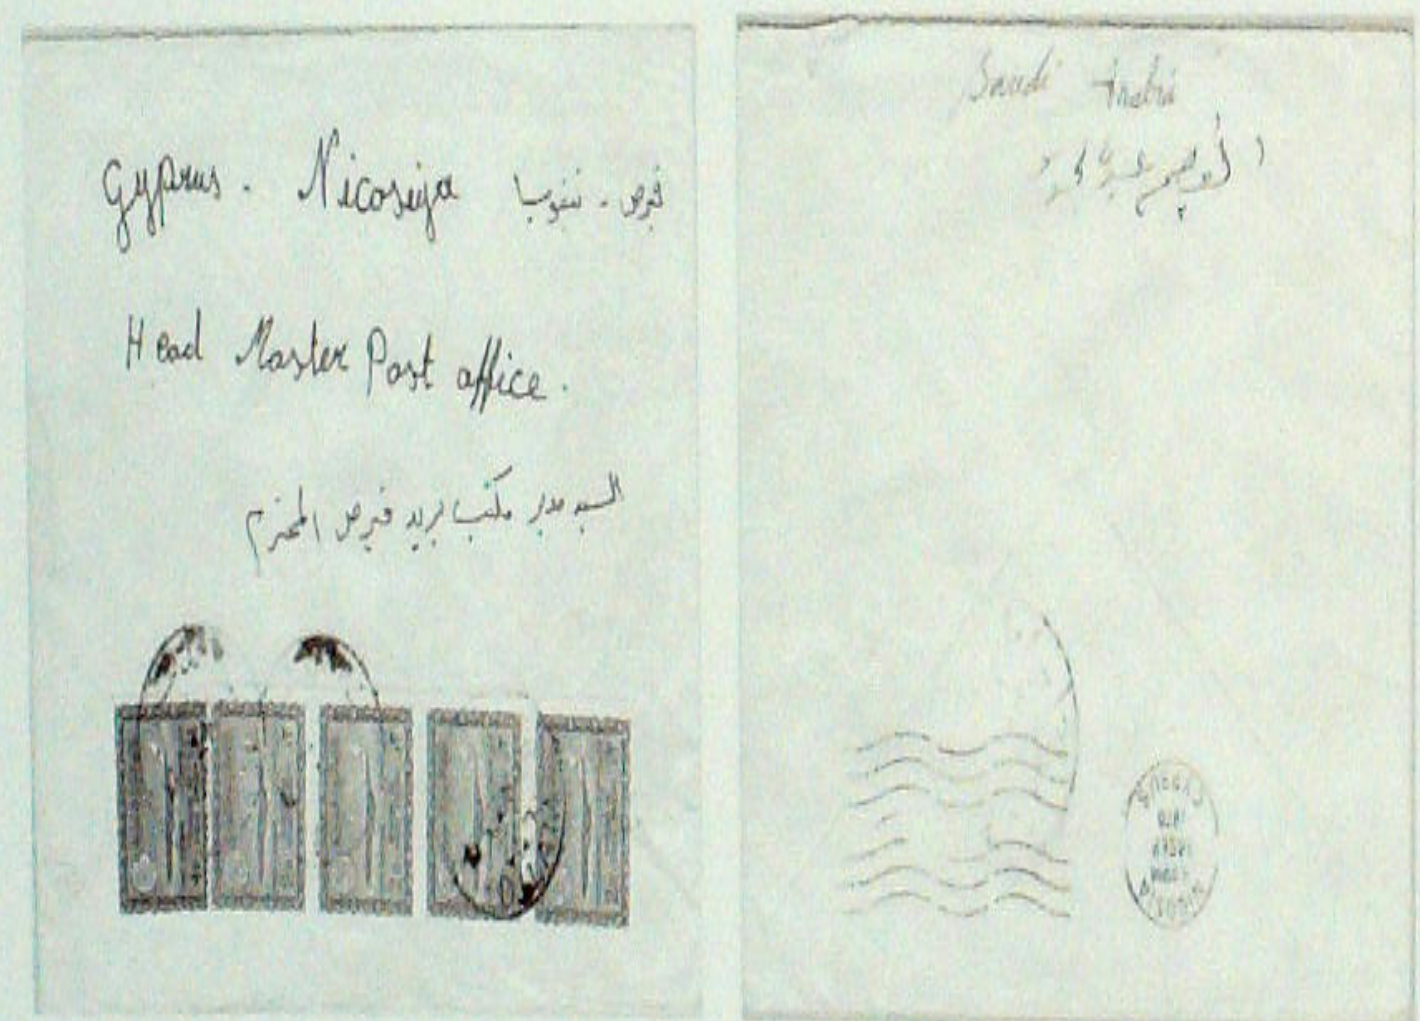 Gyprus . Nicosiya قبرص - نيقوسيا
Head Master Post office .
السيد مدير مكتب بريد قبرص المحترم
Saudi Arabia
CYPRUS
NICOSIA